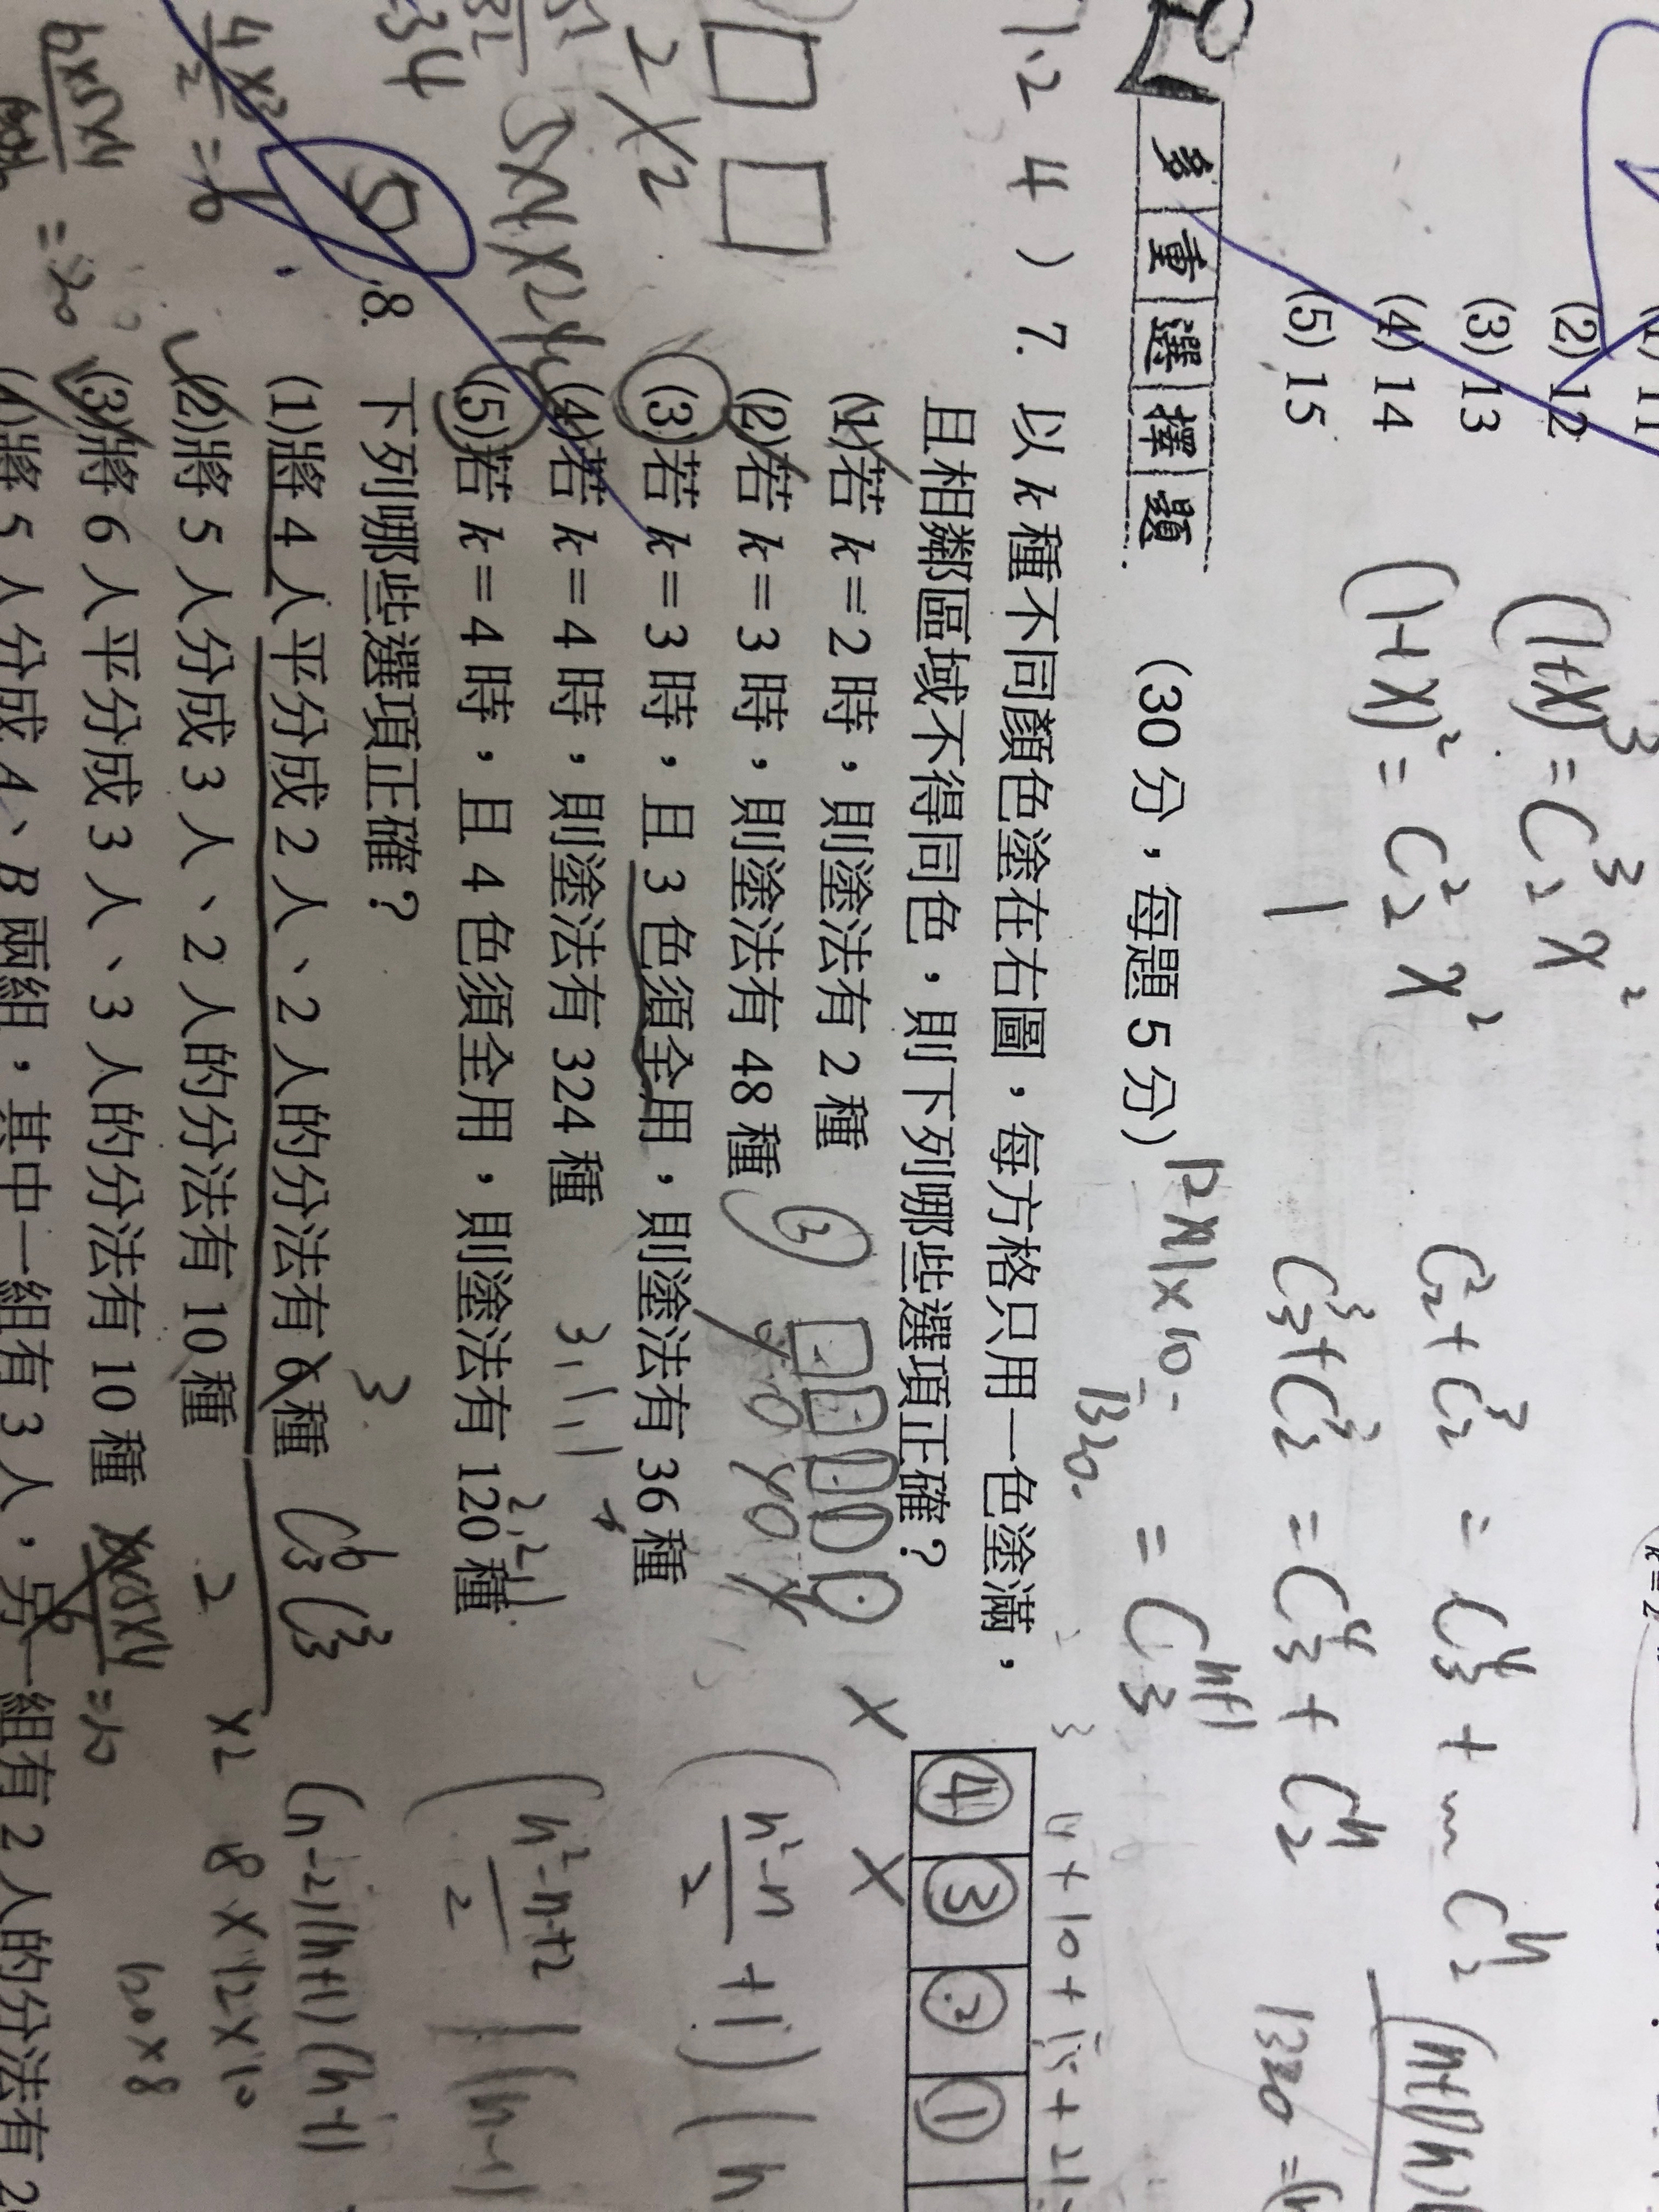 (2) 12
(3) 13
(4) 14
(5) 15
(1+x)³ = C³₂ x²
(1+x)² = C²₂ x²
1
C²₂ + C³₂ = C⁴₃ + … Cⁿ₂
C³₃ + C³₂ = C⁴₃ + Cⁿ₂
= Cⁿ⁺¹₃
12×11×10=
1320.
1320 =
多重選擇題 (30 分，每題 5 分)
1.2 4 ) 7. 以 k 種不同顏色塗在右圖，每方格只用一色塗滿，
且相鄰區域不得同色，則下列哪些選項正確？
④ ③ ② ①
4+10+15+21
(1)若 k = 2 時，則塗法有 2 種
(2)若 k = 3 時，則塗法有 48 種
(3)若 k = 3 時，且 3 色須全用，則塗法有 36 種
(4)若 k = 4 時，則塗法有 324 種
3,1,1
(5)若 k = 4 時，且 4 色須全用，則塗法有 120 種
2,2,1
5 8. 下列哪些選項正確？
3
(1)將 4 人平分成 2 人、2 人的分法有 6 種
C⁶₃ C³₃
2
×2
(2)將 5 人分成 3 人、2 人的分法有 10 種
(3)將 6 人平分成 3 人、3 人的分法有 10 種
=10
(4)將 5 人分成 A、B 兩組，其中一組有 3 人，另一組有 2 人的分法有
(n²-n / 2 + 1)
(n²-n+2 / 2)
(n-2)(n+1)(n-1)
8×12×10
120×8
2×2
5×4×2
34
4×3 / 2 = 6
6×5×4
=20